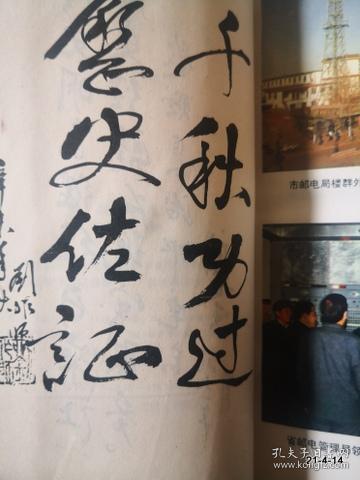 千秋功过
歷史佐证
市邮电局楼群外
省邮电管理局领
孔夫子旧书网
21-4-14